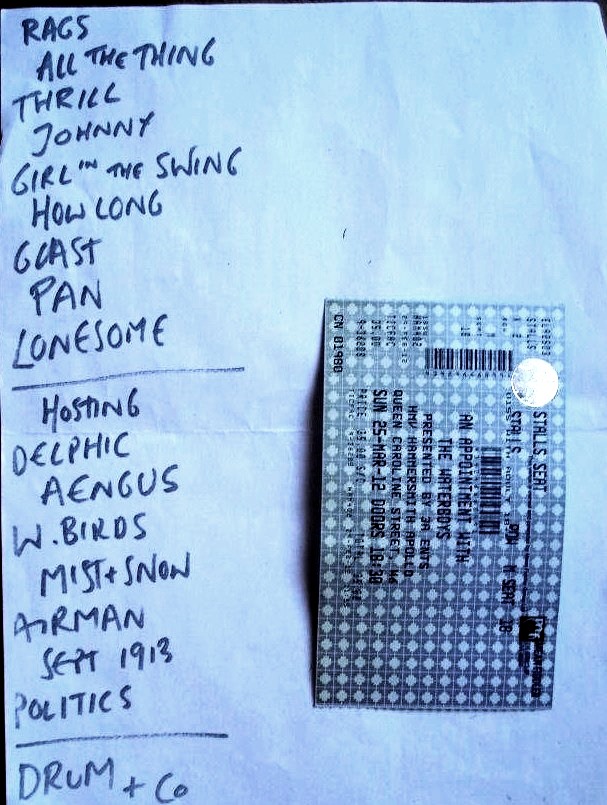 RAGS
ALL THE THING
THRILL
JOHNNY
GIRL IN THE SWING
HOW LONG
GLAST
PAN
LONESOME
HOSTING
DELPHIC
AENGUS
W. BIRDS
MIST + SNOW
AIRMAN
SEPT 1913
POLITICS
DRUM + CO
STALLS SEAT
STALLS
AN APPOINTMENT WITH
THE WATERBOYS
PRESENTED BY 3A ENTS
HMV HAMMERSMITH APOLLO
QUEEN CAROLINE STREET, W6
SUN 25-MAR-12 DOORS 18:30
CN 01980